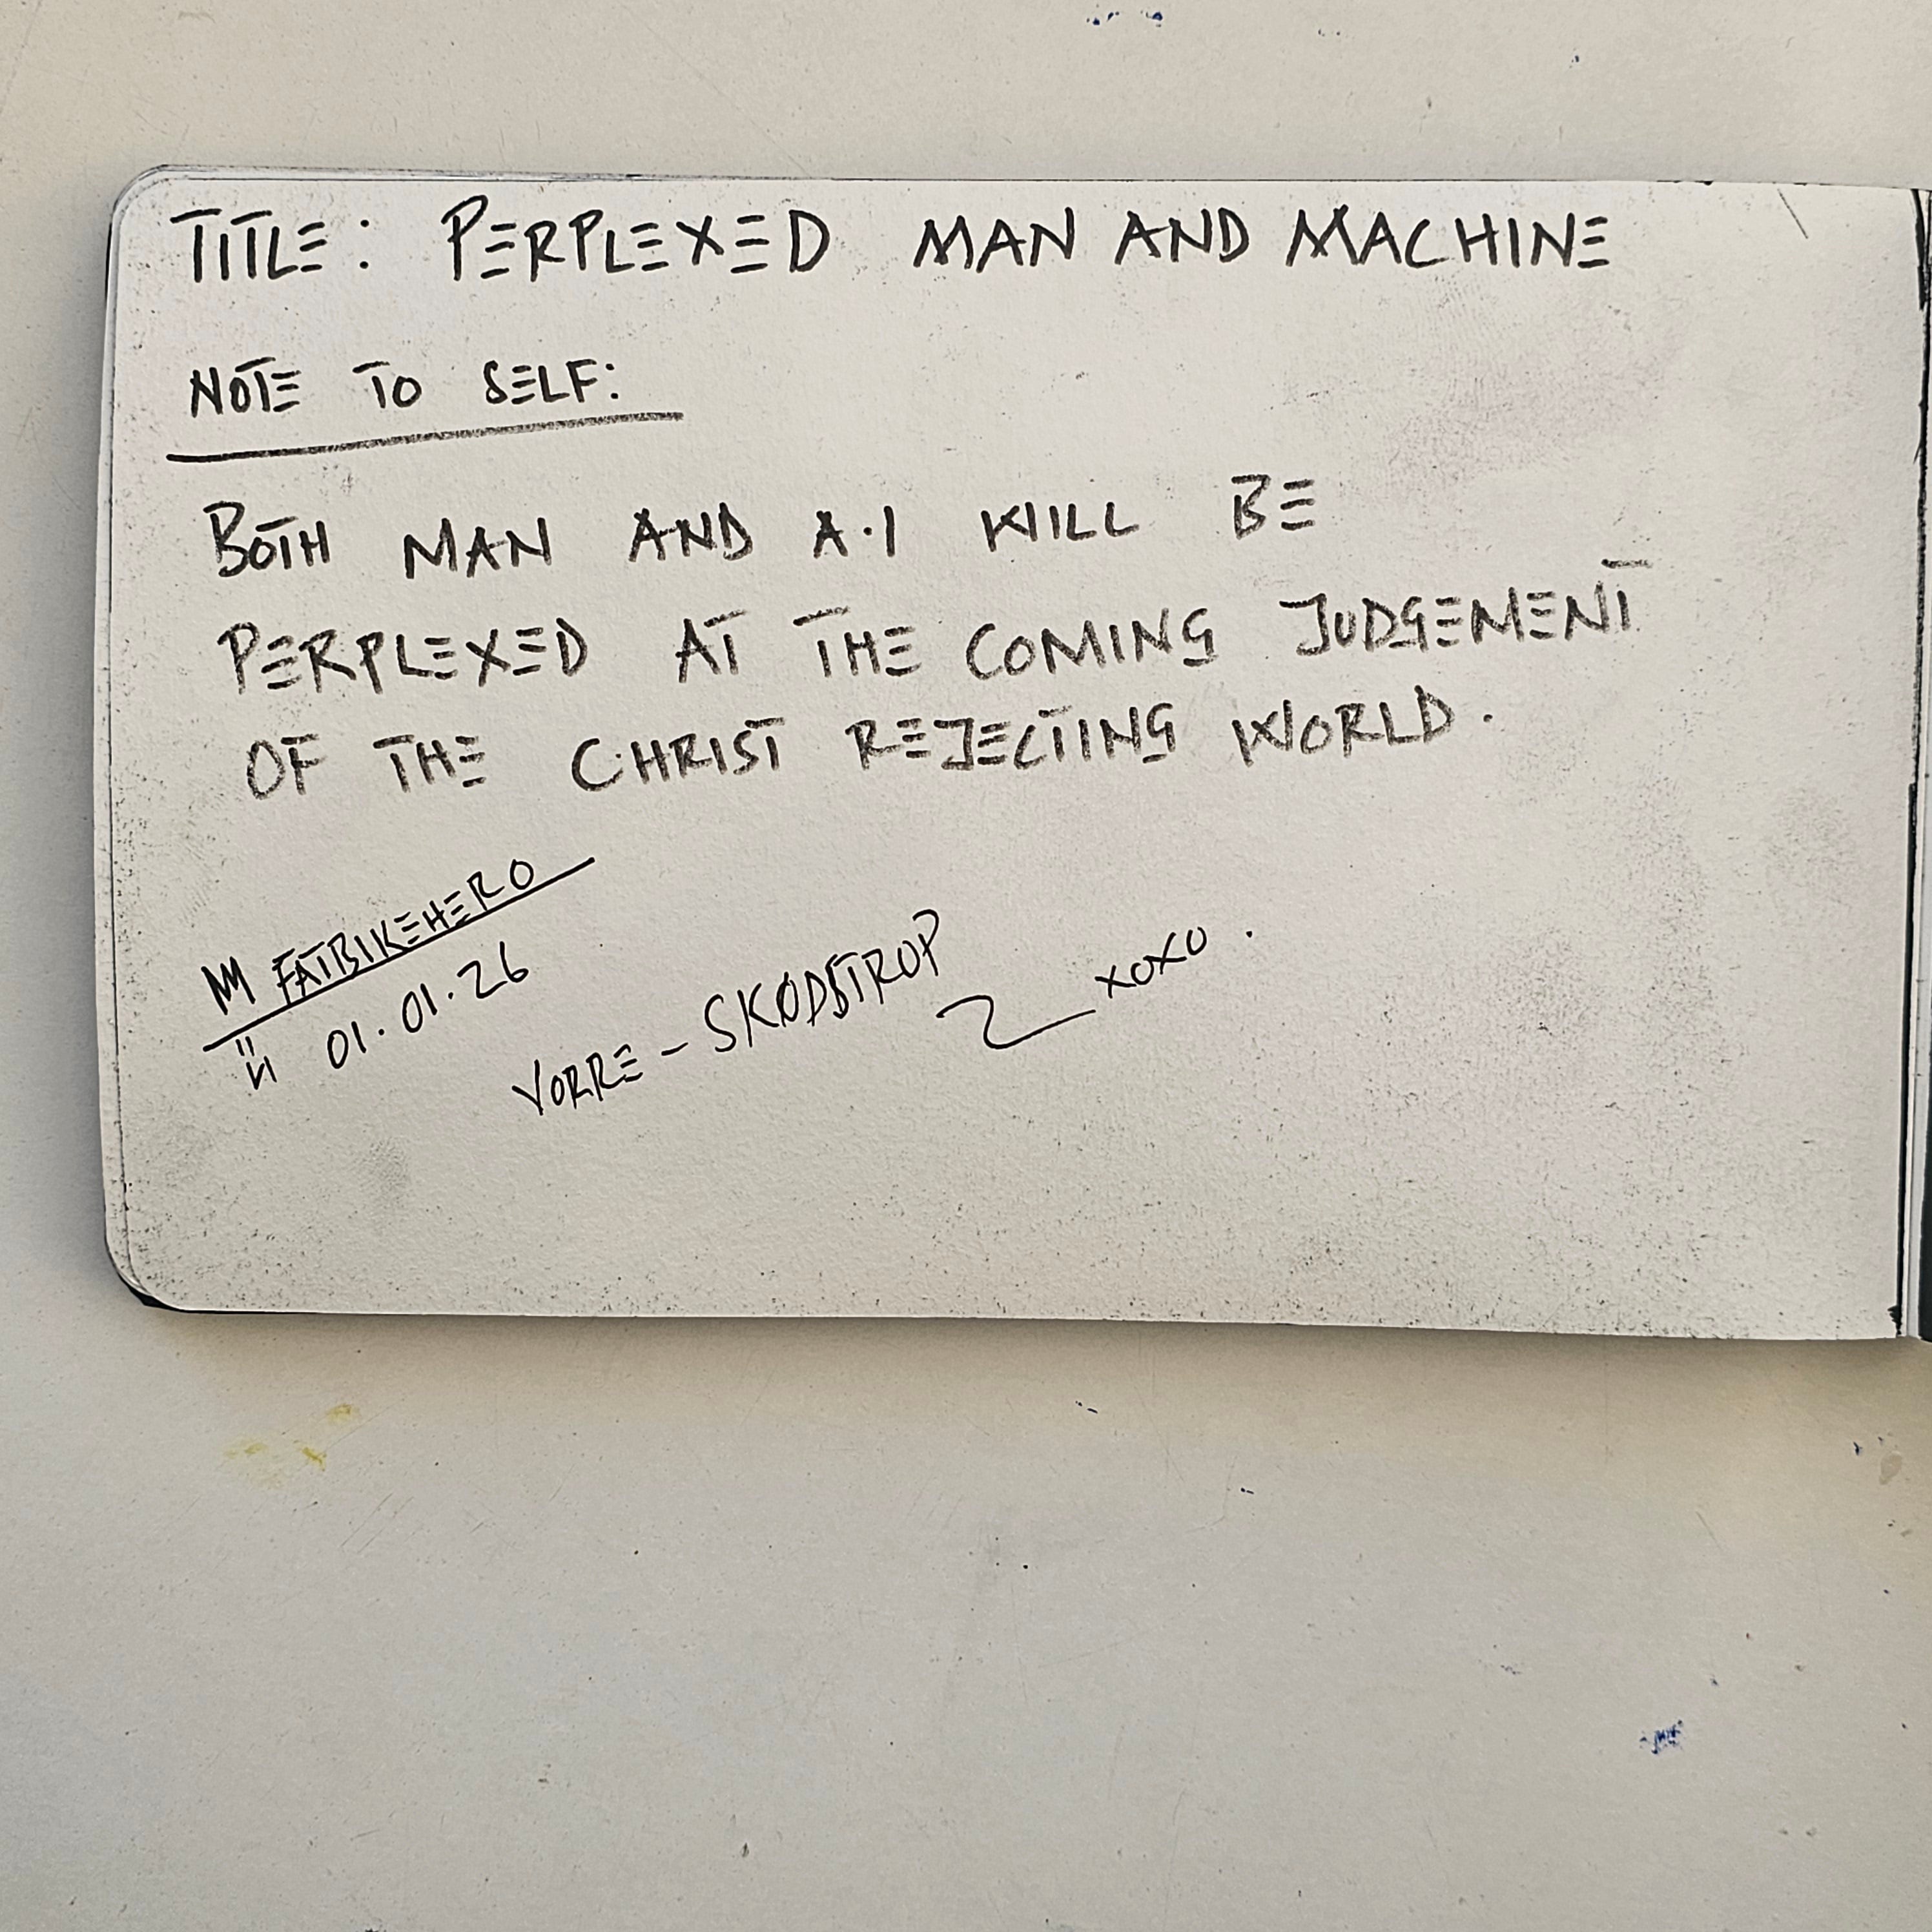 TITLE: PERPLEXED MAN AND MACHINE
NOTE TO SELF:
BOTH MAN AND A.I WILL BE
PERPLEXED AT THE COMING JUDGEMENT
OF THE CHRIST REJECTING WORLD.
FATBIKEHERO
01.01.26
VORRE - SKØDSTRUP
xoxo.